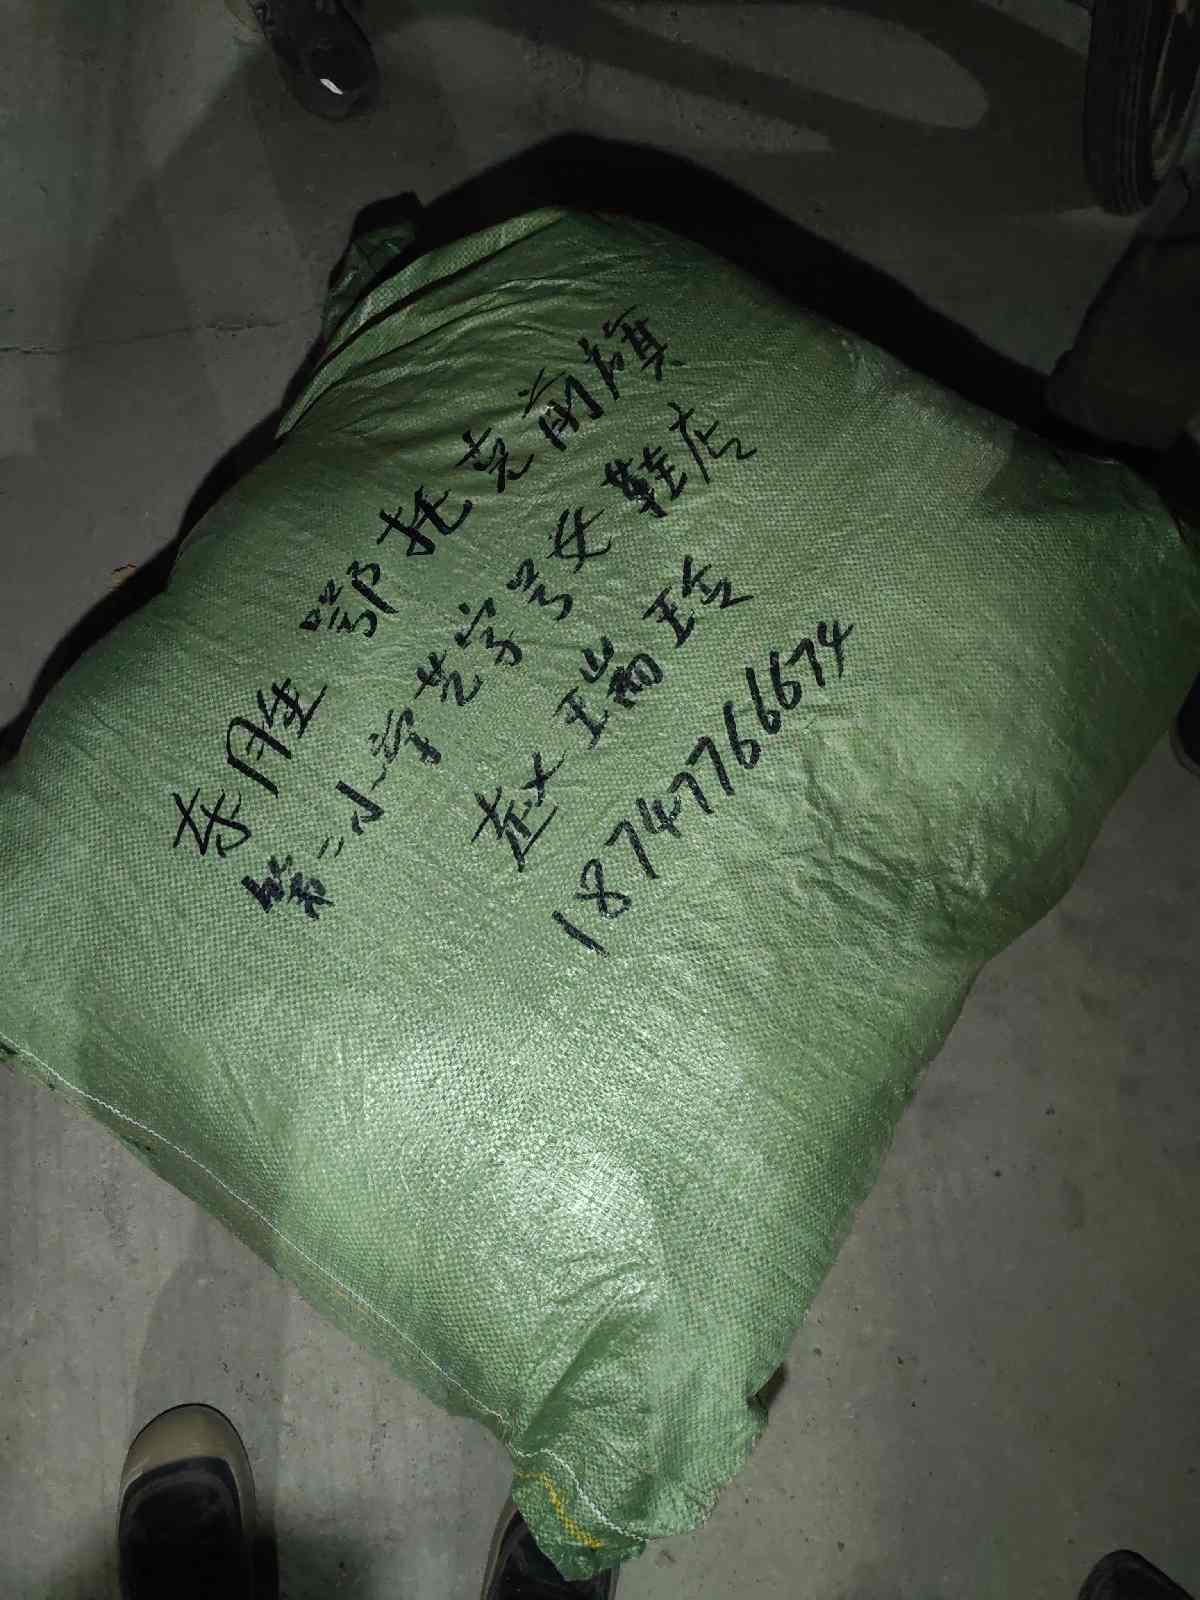 东胜 鄂托克前旗
第二小学艺字号女鞋店
赵瑞玲
18747766674